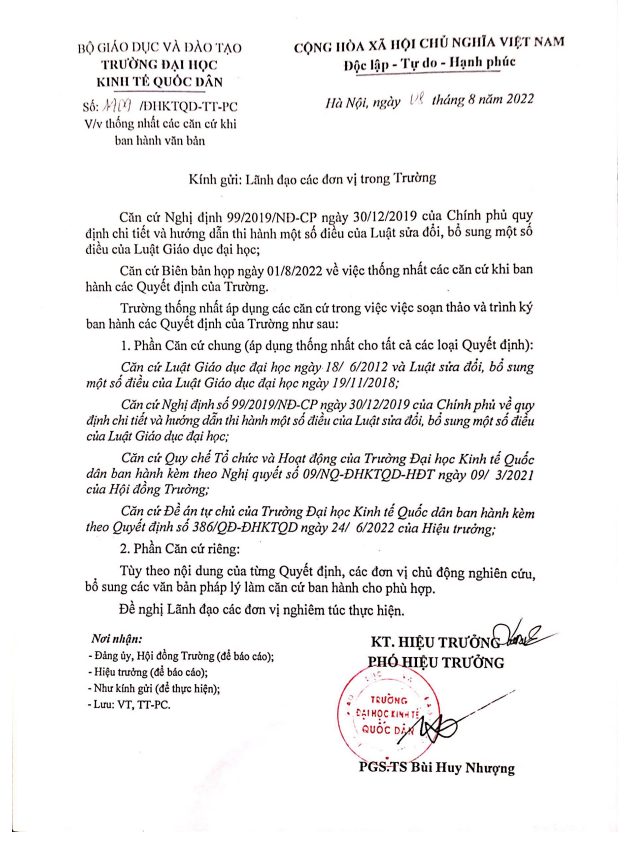 BỘ GIÁO DỤC VÀ ĐÀO TẠO
TRƯỜNG ĐẠI HỌC
KINH TẾ QUỐC DÂN
Số: /ĐHKTQD-TT-PC
V/v thống nhất các căn cứ khi
ban hành văn bản
CỘNG HÒA XÃ HỘI CHỦ NGHĨA VIỆT NAM
Độc lập - Tự do - Hạnh phúc
Hà Nội, ngày 08 tháng 8 năm 2022
Kính gửi: Lãnh đạo các đơn vị trong Trường
Căn cứ Nghị định 99/2019/NĐ-CP ngày 30/12/2019 của Chính phủ quy
định chi tiết và hướng dẫn thi hành một số điều của Luật sửa đổi, bổ sung một số
điều của Luật Giáo dục đại học;
Căn cứ Biên bản họp ngày 01/8/2022 về việc thống nhất các căn cứ khi ban
hành các Quyết định của Trường.
Trường thống nhất áp dụng các căn cứ trong việc việc soạn thảo và trình ký
ban hành các Quyết định của Trường như sau:
1. Phần Căn cứ chung (áp dụng thống nhất cho tất cả các loại Quyết định):
Căn cứ Luật Giáo dục đại học ngày 18/ 6/2012 và Luật sửa đổi, bổ sung
một số điều của Luật Giáo dục đại học ngày 19/11/2018;
Căn cứ Nghị định số 99/2019/NĐ-CP ngày 30/12/2019 của Chính phủ về quy
định chi tiết và hướng dẫn thi hành một số điều của Luật sửa đổi, bổ sung một số điều
của Luật Giáo dục đại học;
Căn cứ Quy chế Tổ chức và Hoạt động của Trường Đại học Kinh tế Quốc
dân ban hành kèm theo Nghị quyết số 09/NQ-ĐHKTQD-HĐT ngày 09/ 3/2021
của Hội đồng Trường;
Căn cứ Đề án tự chủ của Trường Đại học Kinh tế Quốc dân ban hành kèm
theo Quyết định số 386/QĐ-ĐHKTQD ngày 24/ 6/2022 của Hiệu trưởng;
2. Phần Căn cứ riêng:
Tùy theo nội dung của từng Quyết định, các đơn vị chủ động nghiên cứu,
bổ sung các văn bản pháp lý làm căn cứ ban hành cho phù hợp.
Đề nghị Lãnh đạo các đơn vị nghiêm túc thực hiện.
Nơi nhận:
- Đảng ủy, Hội đồng Trường (để báo cáo);
- Hiệu trưởng (để báo cáo);
- Như kính gửi (để thực hiện);
- Lưu: VT, TT-PC.
KT. HIỆU TRƯỞNG
PHÓ HIỆU TRƯỞNG
TRƯỜNG
ĐẠI HỌC KINH TẾ
QUỐC DÂN
PGS.TS Bùi Huy Nhượng